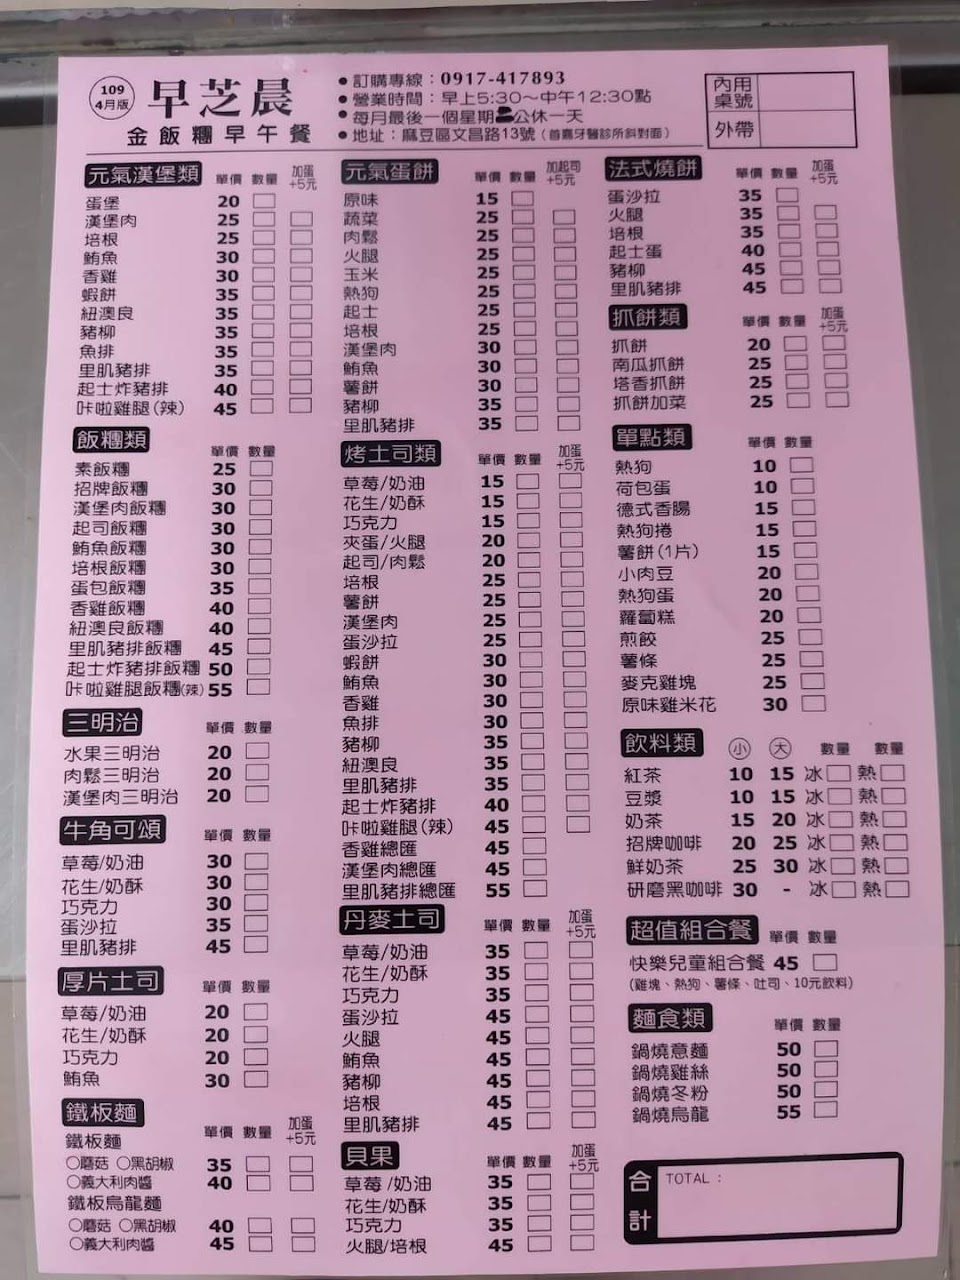 109
4月版
早芝晨
金飯糰早午餐
●訂購專線：0917-417893
●營業時間：早上5:30～中午12:30點
●每月最後一個星期二公休一天
●地址：麻豆區文昌路13號（首嘉牙醫診所斜對面）
內用桌號
外帶
元氣漢堡類 單價 數量 加蛋+5元
蛋堡 20
漢堡肉 25
培根 25
鮪魚 30
香雞 30
蝦餅 35
紐澳良 35
豬柳 35
魚排 35
里肌豬排 35
起士炸豬排 40
咔啦雞腿(辣) 45
飯糰類 單價 數量
素飯糰 25
招牌飯糰 30
漢堡肉飯糰 30
起司飯糰 30
鮪魚飯糰 30
培根飯糰 30
蛋包飯糰 35
香雞飯糰 40
紐澳良飯糰 40
里肌豬排飯糰 45
起士炸豬排飯糰 50
咔啦雞腿飯糰(辣) 55
三明治 單價 數量
水果三明治 20
肉鬆三明治 20
漢堡肉三明治 20
牛角可頌 單價 數量
草莓/奶油 30
花生/奶酥 30
巧克力 30
蛋沙拉 35
里肌豬排 45
厚片土司 單價 數量
草莓/奶油 20
花生/奶酥 20
巧克力 20
鮪魚 30
鐵板麵 單價 數量 加蛋+5元
鐵板麵
○蘑菇 ○黑胡椒 35
○義大利肉醬 40
鐵板烏龍麵
○蘑菇 ○黑胡椒 40
○義大利肉醬 45
元氣蛋餅 單價 數量 加起司+5元
原味 15
蔬菜 25
肉鬆 25
火腿 25
玉米 25
熱狗 25
起士 25
培根 25
漢堡肉 30
鮪魚 30
薯餅 30
豬柳 35
里肌豬排 35
烤土司類 單價 數量 加蛋+5元
草莓/奶油 15
花生/奶酥 15
巧克力 15
夾蛋/火腿 20
起司/肉鬆 20
培根 25
薯餅 25
漢堡肉 25
蛋沙拉 25
蝦餅 30
鮪魚 30
香雞 30
魚排 30
豬柳 35
紐澳良 35
里肌豬排 35
起士炸豬排 40
咔啦雞腿(辣) 45
香雞總匯 45
漢堡肉總匯 45
里肌豬排總匯 55
丹麥土司 單價 數量 加蛋+5元
草莓/奶油 35
花生/奶酥 35
巧克力 35
蛋沙拉 45
火腿 45
鮪魚 45
豬柳 45
培根 45
里肌豬排 45
貝果 單價 數量 加蛋+5元
草莓/奶油 35
花生/奶酥 35
巧克力 35
火腿/培根 45
法式燒餅 單價 數量 加蛋+5元
蛋沙拉 35
火腿 35
培根 35
起士蛋 40
豬柳 45
里肌豬排 45
抓餅類 單價 數量 加蛋+5元
抓餅 20
南瓜抓餅 25
塔香抓餅 25
抓餅加菜 25
單點類 單價 數量
熱狗 10
荷包蛋 10
德式香腸 15
熱狗捲 15
薯餅(1片) 15
小肉豆 20
熱狗蛋 20
蘿蔔糕 20
煎餃 25
薯條 25
麥克雞塊 25
原味雞米花 30
飲料類 小 大 數量 數量
紅茶 10 15 冰 熱
豆漿 10 15 冰 熱
奶茶 15 20 冰 熱
招牌咖啡 20 25 冰 熱
鮮奶茶 25 30 冰 熱
研磨黑咖啡 30 - 冰 熱
超值組合餐 單價 數量
快樂兒童組合餐 45
(雞塊、熱狗、薯條、吐司、10元飲料)
麵食類 單價 數量
鍋燒意麵 50
鍋燒雞絲 50
鍋燒冬粉 50
鍋燒烏龍 55
合計 TOTAL：